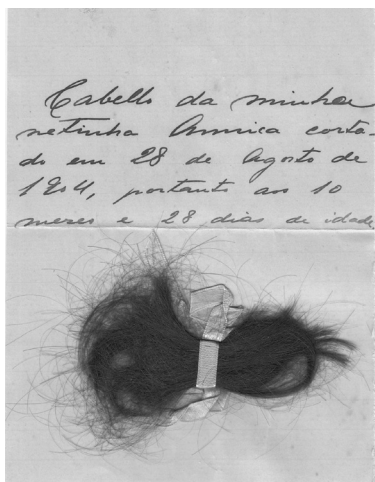 Cabello da minha
netinha Annica corta-
do em 28 de Agosto de
1904, portanto aos 10
mezes e 28 dias de idade